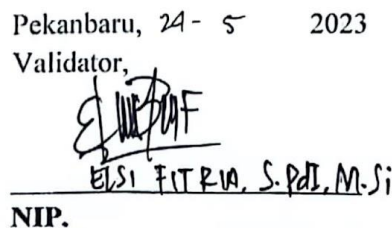 Pekanbaru, 24 - 5 2023
Validator,
ELSI FITRIA, S.PdI, M.Si
NIP.